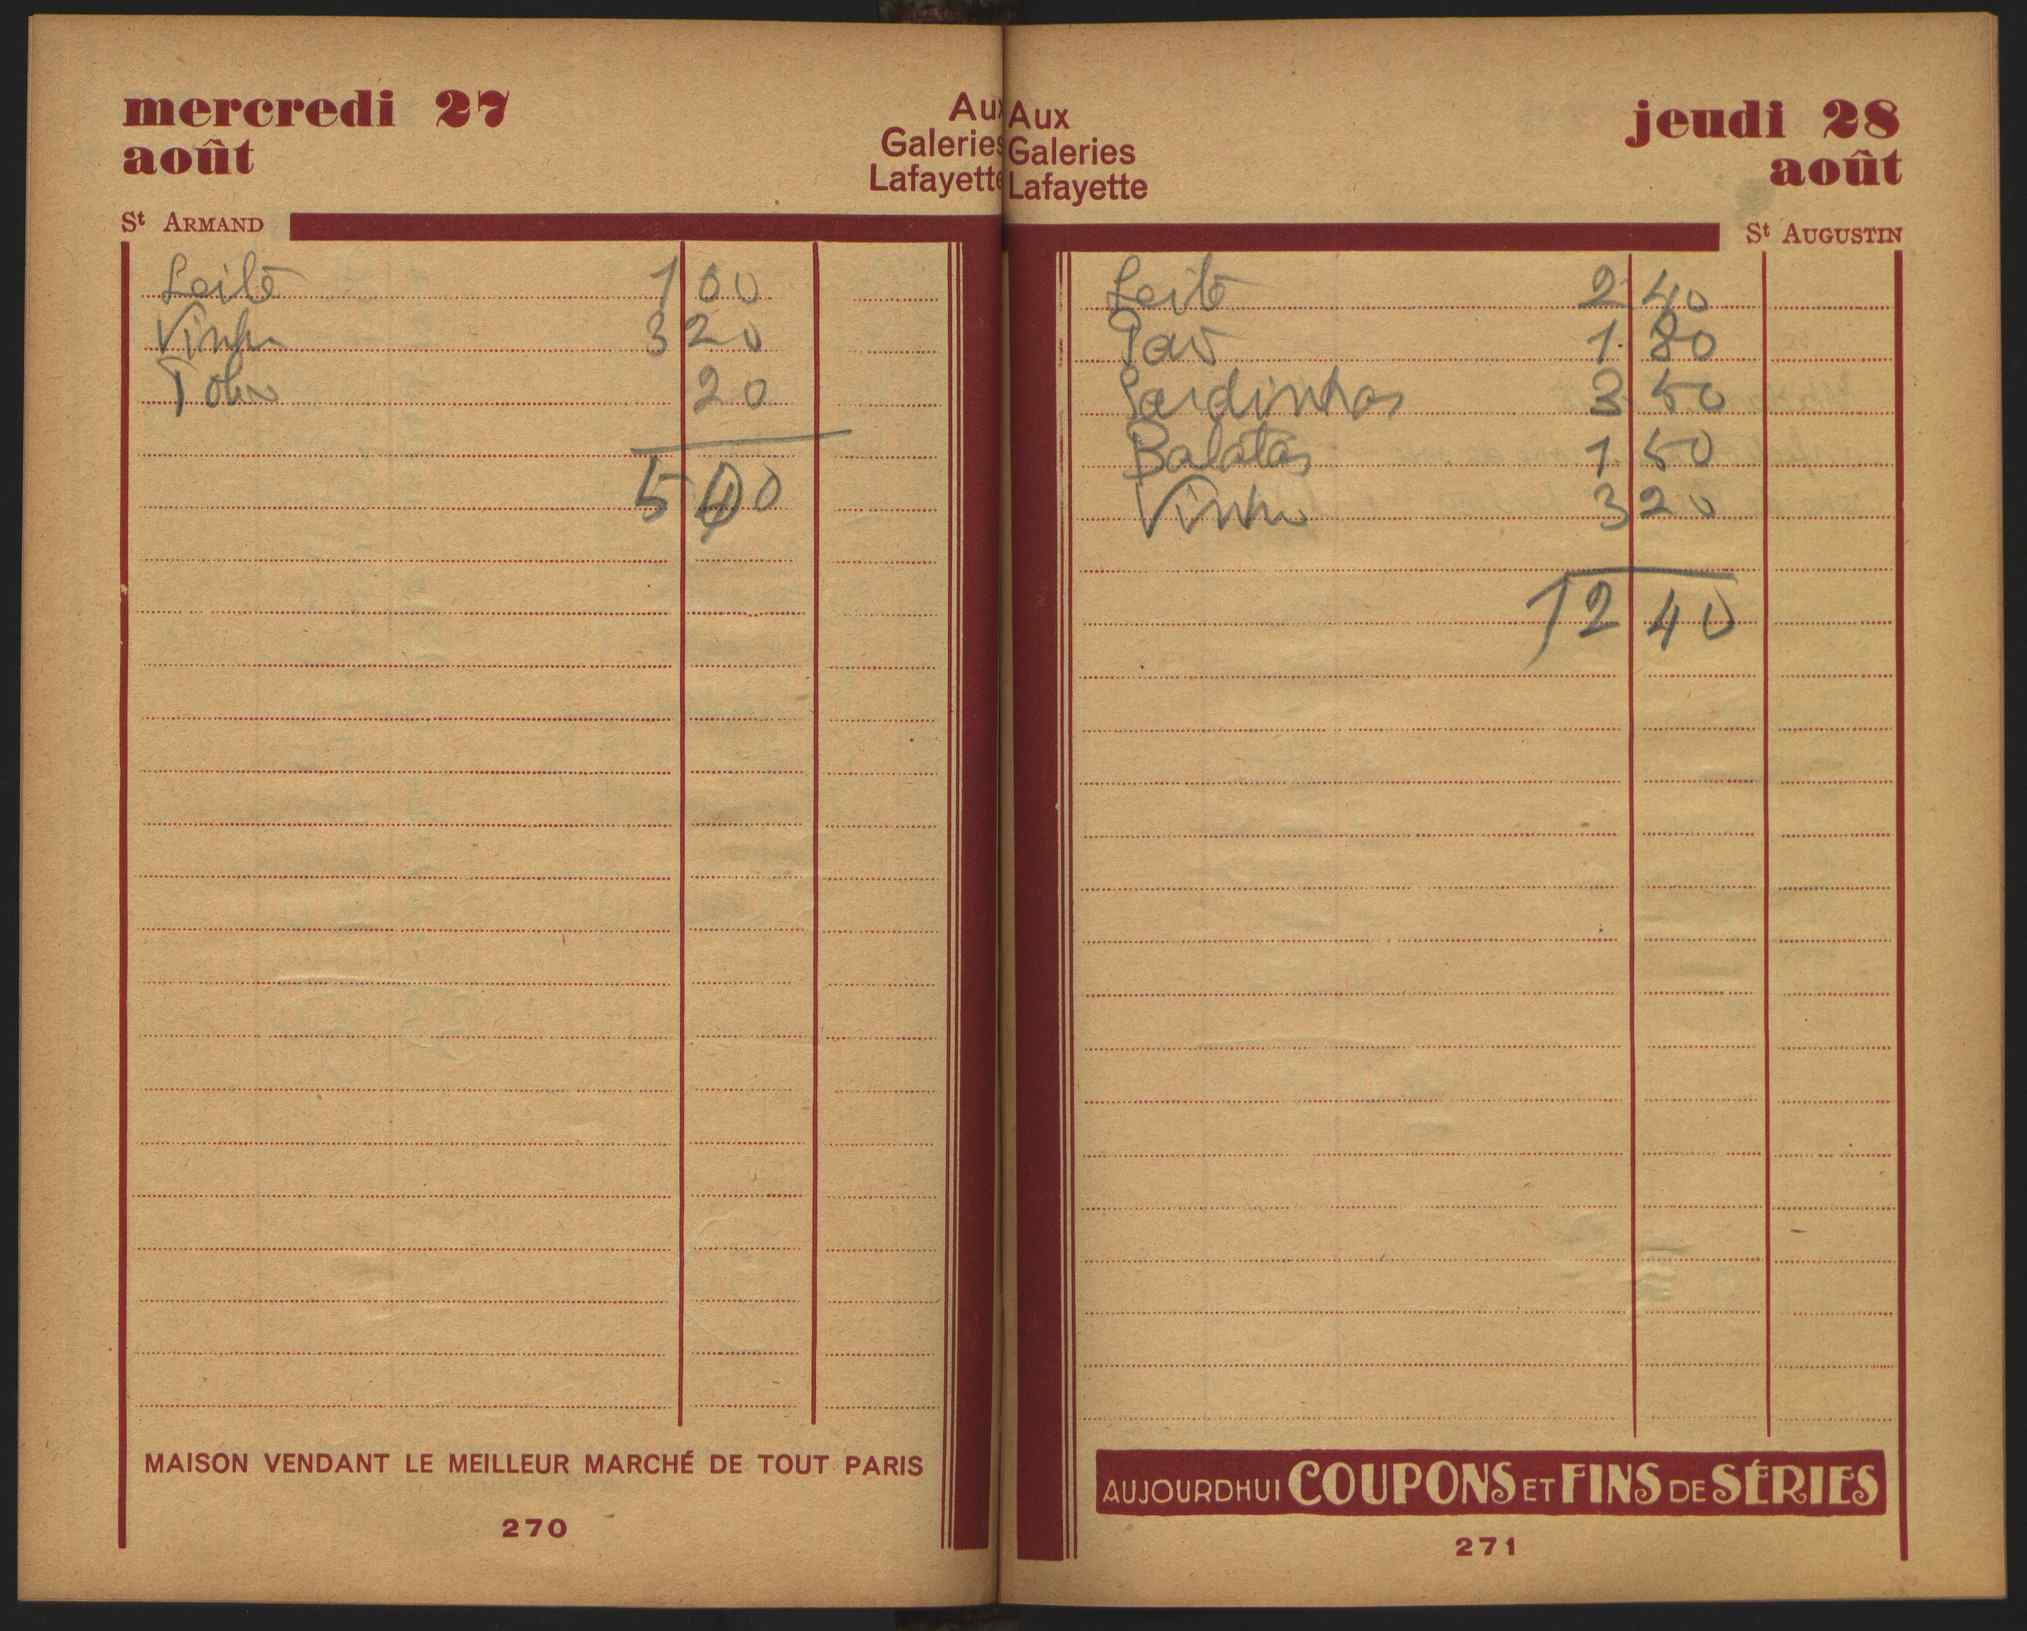 mercredi 27
août
Aux
Galeries
Lafayette
St ARMAND
Leite 1 00
Vinho 3 20
20
5 40
MAISON VENDANT LE MEILLEUR MARCHÉ DE TOUT PARIS
270
Aux
Galeries
Lafayette
jeudi 28
août
St AUGUSTIN
Leite 2 40
Pão 1 80
Sardinhas 3 50
Batatas 1 50
Vinho 3 20
12 40
AUJOURDHUI COUPONS ET FINS DE SÉRIES
271